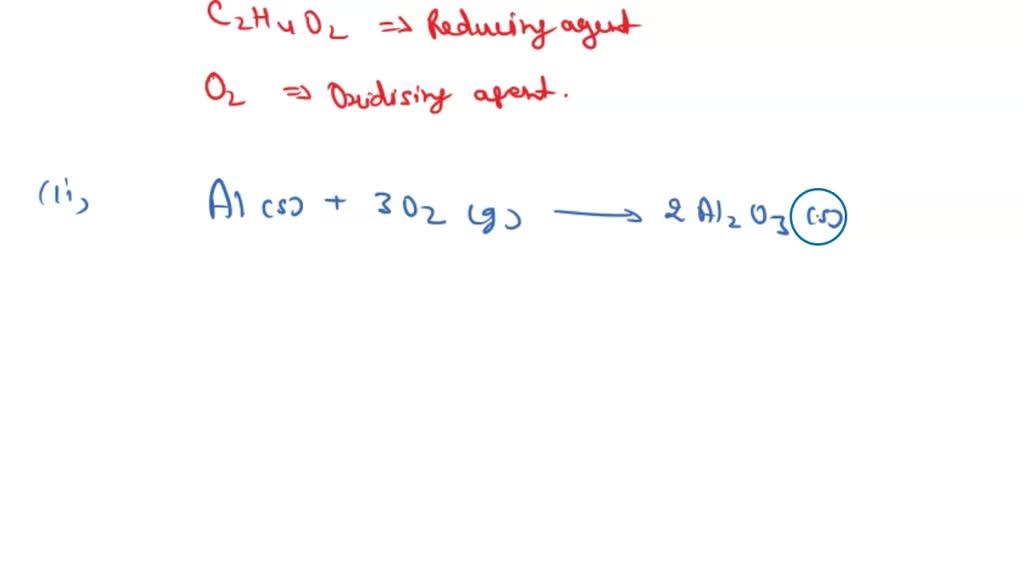 C2H4O2 => Reducing agent
O2 => Oxidising agent.
(ii, Al (s) + 3 O2 (g) → 2 Al2 O3 (s)